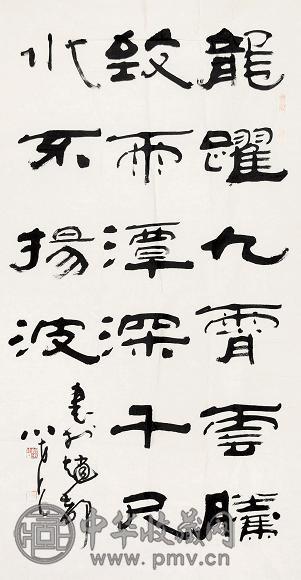 龍躍九霄雲騰
致雨潭深千尺
水不揚波
書於趙都
中华收藏网
www.pmv.cn